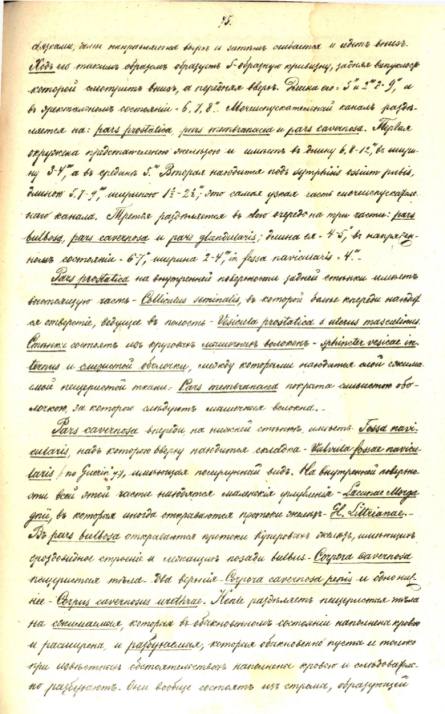 75.
связками, она направляется вверхъ и затѣмъ сгибается и идетъ внизъ.
Ходъ его такимъ образомъ образуетъ S-образную кривизну, задняя выпуклость
которой смотритъ внизъ, а передняя вверхъ. Длина его:
въ эректальномъ состояніи - 6, 7, 8". Мочеиспускательный каналъ раздѣ-
ляется на: pars prostatica, pars membranacea и pars cavernosa. Первая
окружена предстательною железою и имѣетъ въ длину 6, 8-12''' въ шири-
ну 3-4''' а въ срединѣ 5.''' Вторая находится подъ symphisis ossium pubis,
длиною 5, 7-9''', шириною это самая узкая часть мочеиспускатель-
наго канала. Третья раздѣляется въ свою очередь на три части: pars
bulbosa, pars cavernosa и pars glandularis; длина ея - 4-5", въ напряжен-
номъ состояніи - 6-7", ширина 2-4''', въ fossa navicularis - 4'''.
Pars prostatica на внутренней поверхности задней стѣнки имѣетъ
выстоящую часть - Colliculus seminalis, въ которой болѣе кпереди находит-
ся отверстіе, ведущее въ полость - Vesicula prostatica s. uterus masculinus.
Стѣнки состоятъ изъ круговыхъ мышечныхъ волоконъ - sphincter vesicae in-
ternus и слизистой оболочки, между которыми находится слой сжима-
емой пещеристой ткани. Pars membranacea покрыта слизистою обо-
лочкою, за которою слѣдуютъ мышечныя волокна.
Pars cavernosa впереди на нижней стѣнкѣ имѣетъ Fossa navi-
cularis, надъ которою вверху находится складка - Valvula fossae navicu-
laris / по Guerin'у /, имѣющая полулунный видъ. На внутренней поверхно-
сти всей этой части находятся маленькія углубленія - Lacunae Morga-
gnii, въ которыя иногда открываются протоки железъ - Gl. Littrianae.
Въ pars bulbosa открываются протоки куперовыхъ железъ, имѣющихъ
гроздовидное строеніе и лежащихъ позади bulbus. Corpora cavernosa
пещеристыя тѣла - два верхнія - Corpora cavernosa penis и одно ниж-
нее - Corpus cavernosus urethrae. Henle раздѣляетъ пещеристыя тѣла
на сжимаемыя, которыя въ обыкновенномъ состояніи наполнены кровью
и расширены, и разбухаемыя, которыя обыкновенно пусты и только
при извѣстныхъ обстоятельствахъ наполнены кровью и слѣдователь-
но разбухаютъ. Они вообще состоятъ изъ стромы, образующей